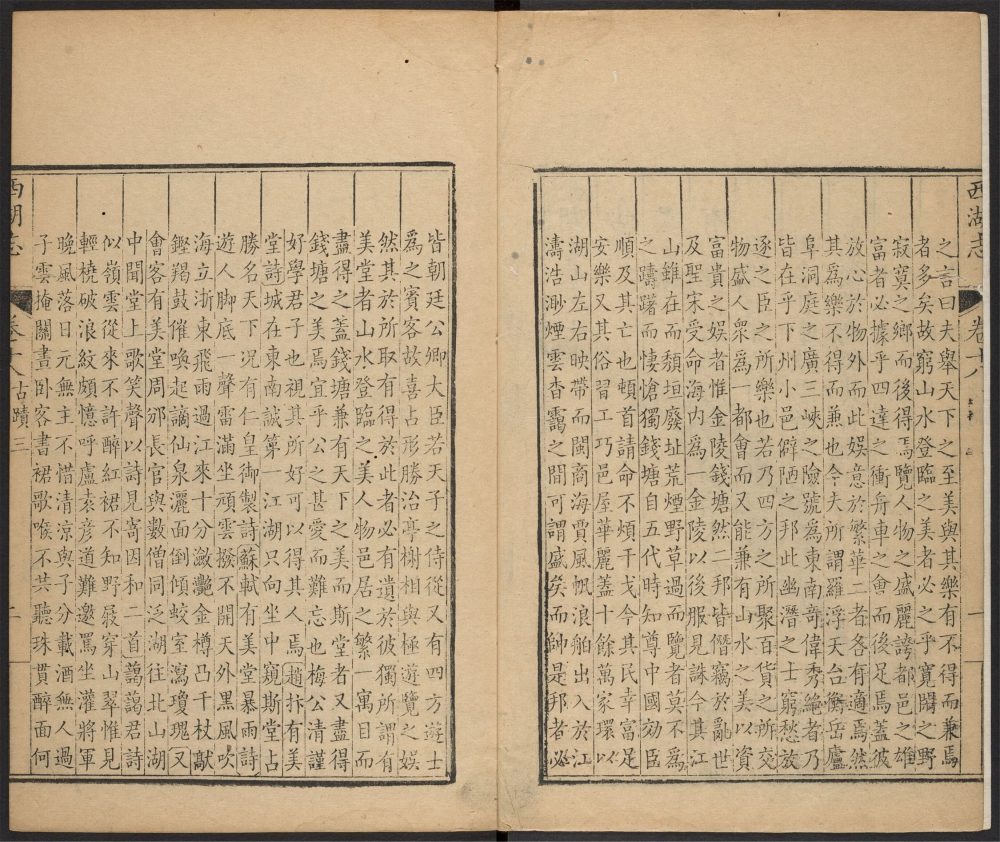 西湖志
卷十八
之言曰夫舉天下之至美與其樂有不得而兼焉
者多矣故窮山水登臨之美者必之乎寬閑之野
寂寞之鄉而後得焉覽人物之盛麗誇都邑之雄
富者必據乎四達之衝舟車之會而後足焉蓋彼
放心於物外而此娛意於繁華二者各有適焉然
其爲樂不得而兼也今夫所謂羅浮天台衡岳廬
阜洞庭之廣三峽之險號爲東南奇偉秀絶者乃
皆在乎下州小邑僻陋之邦此幽潛之士窮愁放
逐之臣之所樂也若乃四方之所聚百貨之所交
物盛人衆爲一都會而又能兼有山水之美以資
富貴之娛者惟金陵錢塘然二邦皆僭竊於亂世
及聖宋受命海內爲一金陵以後服見誅今其江
山雖在而頽垣廢址荒煙野草過而覽者莫不爲
之躊躇而悽愴獨錢塘自五代時知尊中國効臣
順及其亡也頓首請命不煩干戈今其民幸富足
安樂又其俗習工巧邑屋華麗蓋十餘萬家環以
湖山左右映帶而閩商海賈風帆浪舶出入於江
濤浩渺煙雲杳靄之間可謂盛矣而帥是邦者必
皆朝廷公卿大臣若天子之侍從又有四方遊士
爲之賓客故喜占形勝治亭榭相與極遊覽之娛
然其於所取有得於此者必有遺於彼獨所謂有
美堂者山水登臨之美人物邑居之繁一寓目而
盡得之蓋錢塘兼有天下之美而斯堂者又盡得
錢塘之美焉宜乎公之甚愛而難忘也梅公清謹
好學君子也視其所好可以得其人焉趙抃有美
堂詩城在東南誠第一江湖只向坐中窺斯堂占
勝名天下况有仁皇御製詩蘇軾有美堂暴雨詩
遊人脚底一聲雷滿坐頑雲撥不開天外黑風吹
海立浙東飛雨過江來十分瀲灩金樽凸千杖敲
鏗羯鼓催喚起謫仙泉灑面倒傾蛟室瀉瓊瑰又
會客有美堂周邠長官與數僧同泛湖往北山湖
中聞堂上歌笑聲以詩見寄因和二首藹藹君詩
似嶺雲從來不許醉紅裙不知野屐穿山翠惟見
輕橈破浪紋頗憶呼盧袁彦道難邀罵坐灌將軍
晚風落日元無主不惜清涼與子分載酒無人過
子雲掩關晝卧客書裙歌喉不共聽珠貫醉面何
西湖志
卷十八
古蹟三